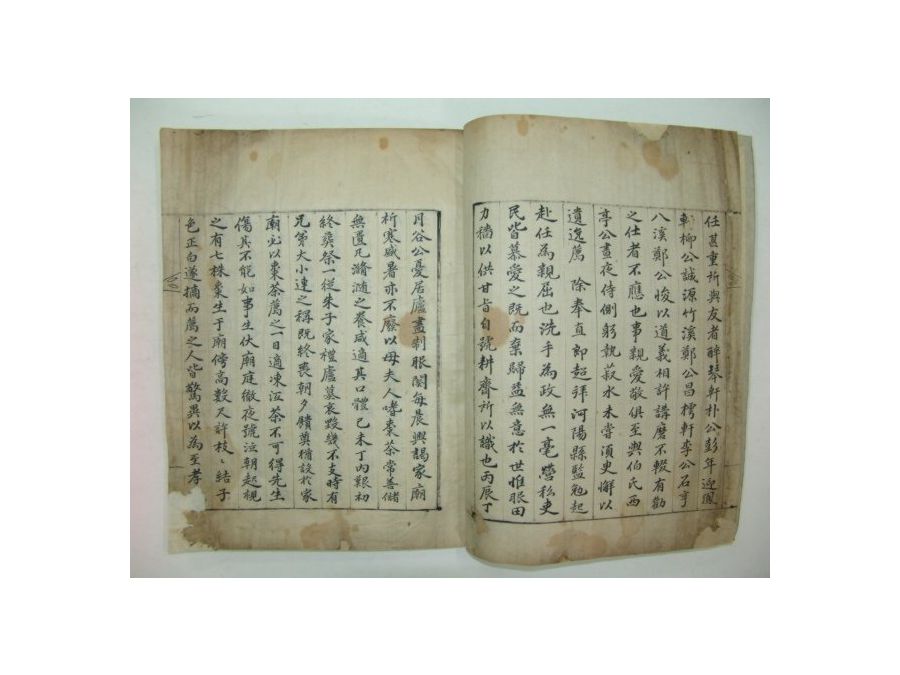 任甚重所與友者醉琴軒朴公彭年迎鳳
軒柳公誠源竹溪鄭公昌樗軒李公石亨
八溪鄭公悛以道義相許講磨不輟有勸
之仕者不應也事親愛敬俱至與伯氏西
亭公晝夜侍側躬執菽水未嘗須臾懈以
遺逸薦 除奉直郎超拜河陽縣監勉起
赴任為親屈也洗手為政無一毫營私吏
民皆慕愛之既而棄歸益無意於世惟服田
力穡以供甘旨自號耕齋所以識也丙辰丁
月谷公憂居廬盡制服闋每晨興謁家廟
祈寒盛暑亦不廢以母夫人嗜棗茶常善儲
無匱凡滫瀡之養咸適其口體己未丁內艱初
終喪祭一從朱子家禮廬墓哀毀幾不支時有
兄弟大小連之稱既終喪朝夕饋奠猶設於家
廟必以棗茶薦之一日適凍沍茶不可得先生
傷其不能如事生伏廟庭徹夜號泣朝起視
之有七株棗生于廟傍高數又許枝〻結子
色正白遂摘而薦之人皆驚異以為至孝